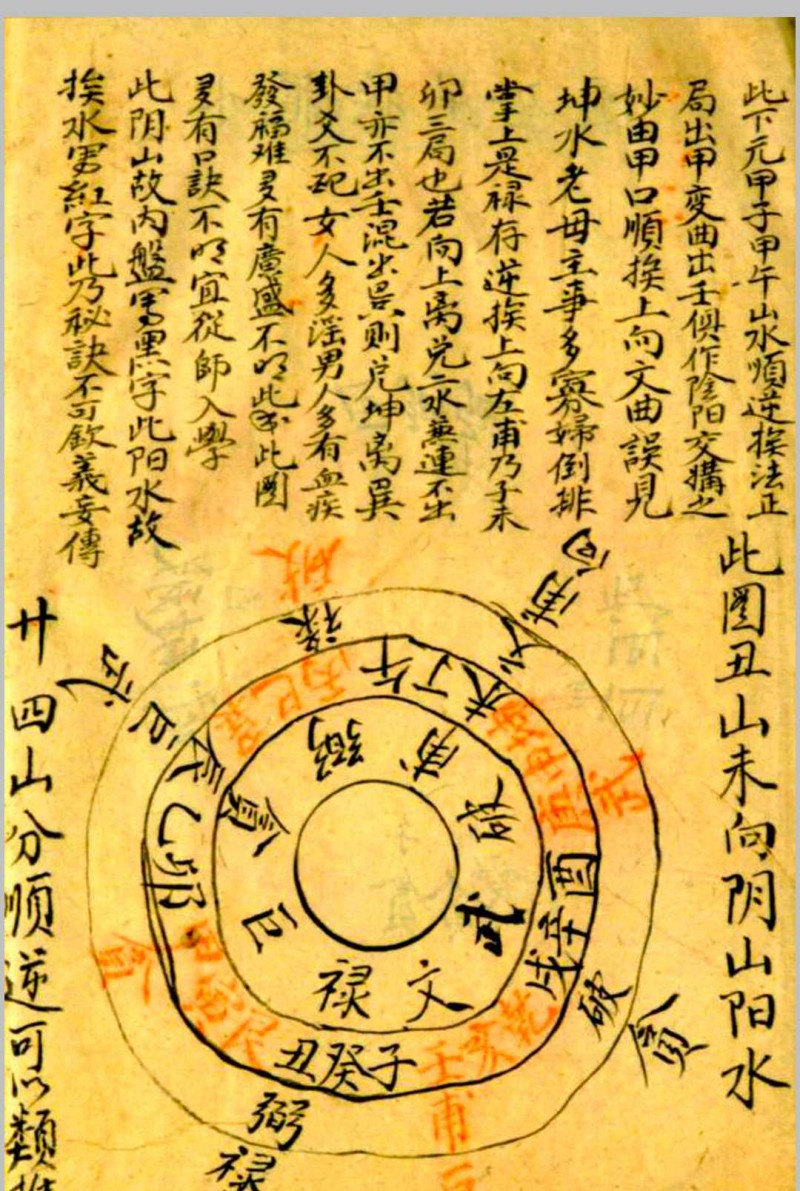 此下元甲子甲午山水順逆挨法正
局出甲变曲出壬俱作陰阳交媾之
妙由甲口順挨上向文曲誤見
坤水老母主事多寡婦倒排
掌上是禄存逆挨上向左甫乃子未
卯三局也若向上离兑二水兼連不出
甲亦不出壬混出艮则兑坤离巽
卦爻不配女人多淫男人多有血疾
發福难多有廣盛不明此此圖
多有口訣不明宜從師入學
此阴山故内盤写黑字此阳水故
挨水写紅字此乃秘訣不可欽義妄傳
此圖丑山未向阴山阳水
廿四山分順逆可以類推
破
禄
向
甫
文
武
巨
丙巳巽
午
丁
未
坤申庚
武
辰
乙
卯
弼
甫
破
武
文
禄
巨
貪
酉
辛
戌
乾
亥
壬
子
癸
丑
艮
寅
甲
貪
破
貪
弼
禄
甫
巨